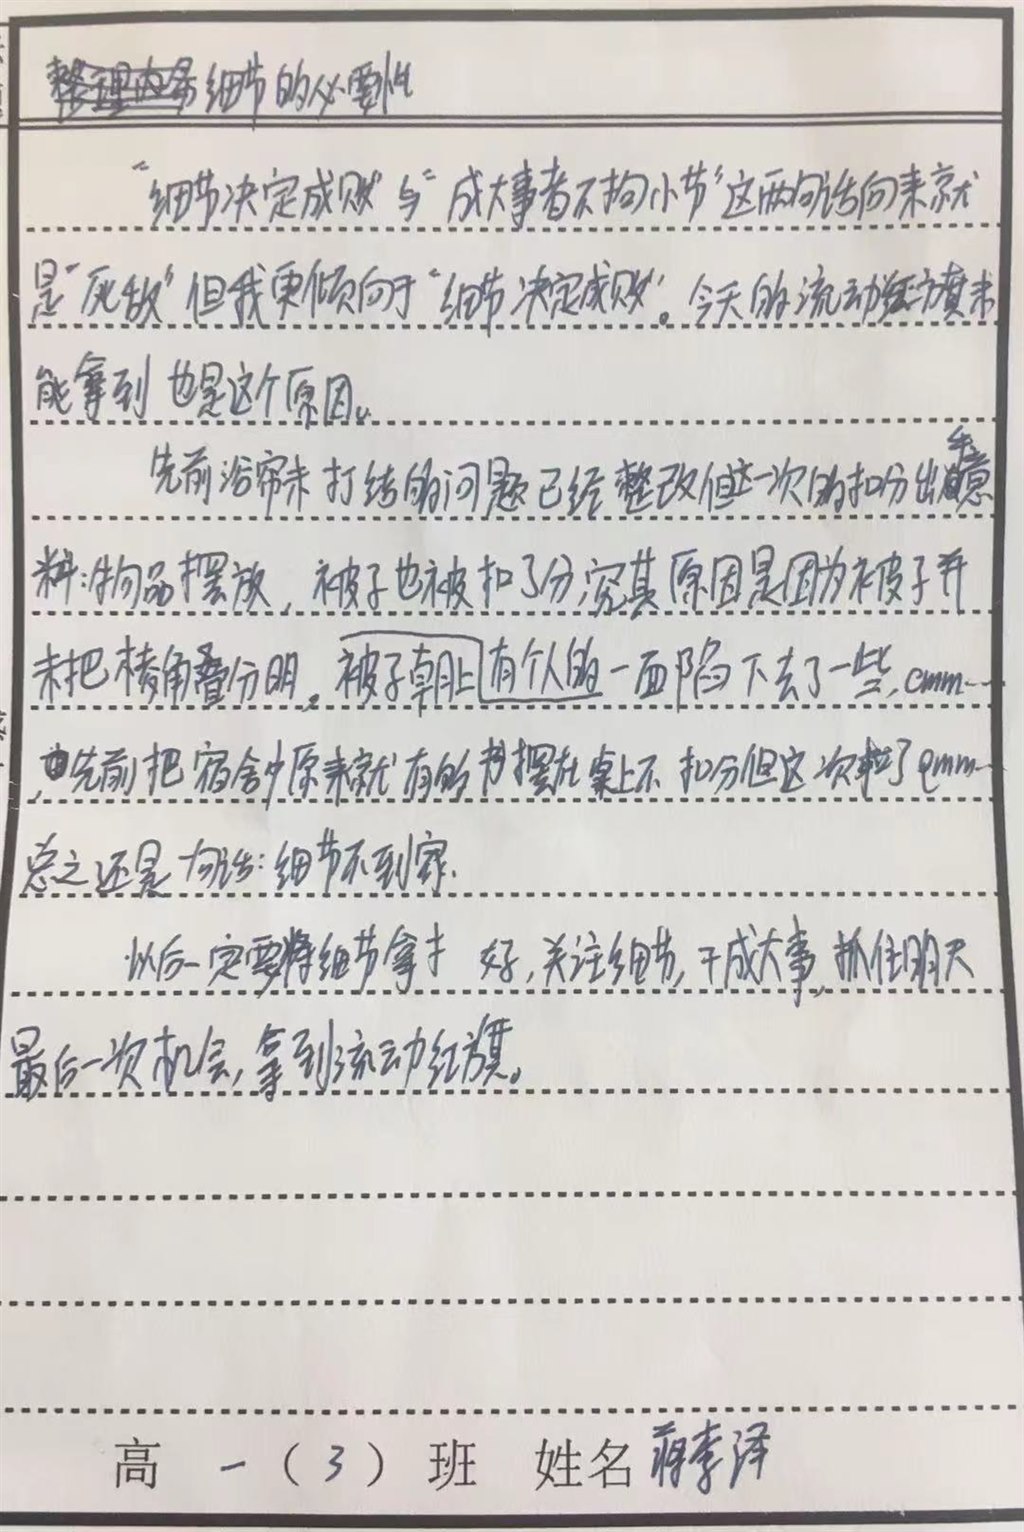 细节的必要性
“细节决定成败”与“成大事者不拘小节”这两句话向来就
是“死敌”但我更倾向于“细节决定成败”。今天的流动红旗未
能拿到也是这个原因。
先前浴帘未打结的问题已经整改但这一次的扣分出乎意
料:物品摆放,被子也被扣了分,究其原因是因为被子并
未把棱角叠分明。被子朝上有个人的一面陷下去了一些,emm…
先前把宿舍中原来就有的书摆在桌上不扣分但这次扣了emm…
总之还是一句话:细节不到家.
以后一定要将细节拿才好,关注细节,干成大事,抓住明天
最后一次机会,拿到流动红旗。
高一(3)班 姓名 蒋李泽